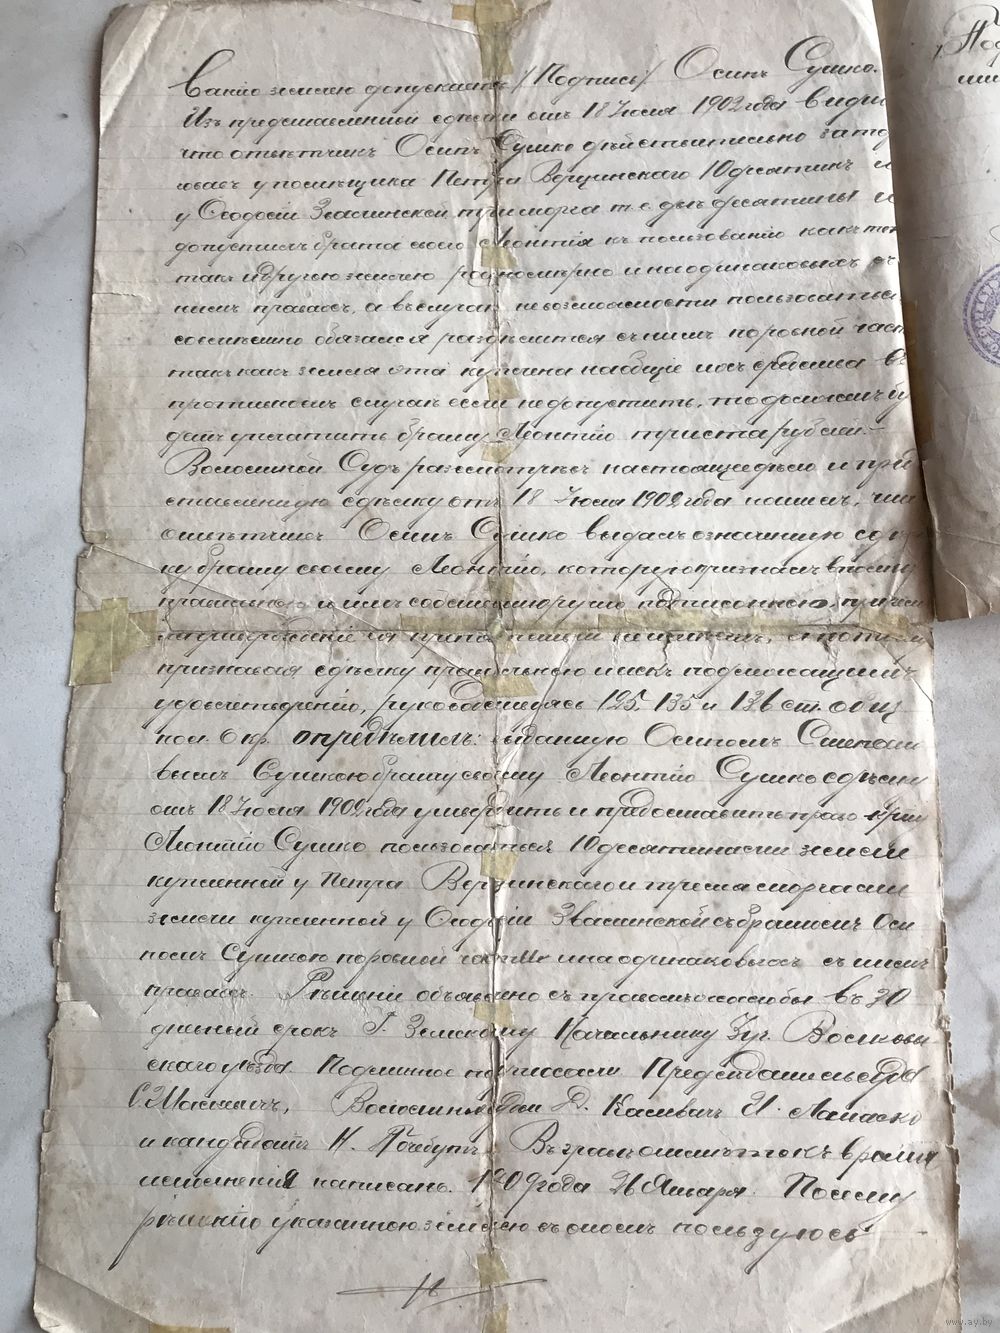 ванію землею допускать /Подпись/ Осипъ Сушко.
Изъ представленной сдѣлки отъ 18 Іюля 1902 года видно
что отвѣтчикъ Осипъ Сушко дѣйствительно
у помѣщика Петра 10 десятинъ и
у Ѳеодосіи три морга т. е. двѣ десятины
допустилъ брата своего Леонтія къ пользованію какъ
такъ и другою землею равномѣрно и на одинаковыхъ съ
нимъ правахъ, а въ случаѣ невозможности пользоваться
совмѣстно обязался раздѣлится съ нимъ поровной
такъ какъ земля эта куплена на общіе ихъ средства въ
противномъ случаѣ если не допустить, то долженъ бу
детъ уплатить брату Леонтію триста рублей.
Волостной Судъ разсмотрѣвъ настоящее дѣло и
сдѣлку отъ 18 Іюля 1902 года нашелъ, что
отвѣтчикъ Осипъ Сушко выдалъ означенную
ку брату своему Леонтію, которую призналъ вполнѣ
правильною и имъ собственноручно подписанною,
а потому
признавая сдѣлку правильною и искъ подлежащимъ
удовлетворенію, руководствуясь 125, 135 и 136 ст. общ
пол. о кр. опредѣлилъ: выданную Осипомъ Степано
вымъ Сушкою брату своему Леонтію Сушко сдѣлку
отъ 18 Іюля 1902 года утвердить и предоставить право кр-ну
Леонтію Сушко пользоваться 10 десятинами земли
купленной у Петра и тремя моргами
земли купленной у Ѳеодосіи съ братомъ Оси
помъ Сушкою поровной частью и на одинаковыхъ съ нимъ
правахъ. Рѣшеніе объявлено съ правомъ жалобы въ 30
дневный срокъ Г. Земскому Начальнику 3 уч. Волковы
скаго уѣзда. Подлинное подписали Предсѣдатель суда
С. Волостные судьи Д. И.
и кандидатъ Н. Въ графѣ отмѣтокъ
исполненія написано. 1909 года 26 Января. По сему
рѣшенію указанною землею съ отцомъ пользуюсь
www.ay.by